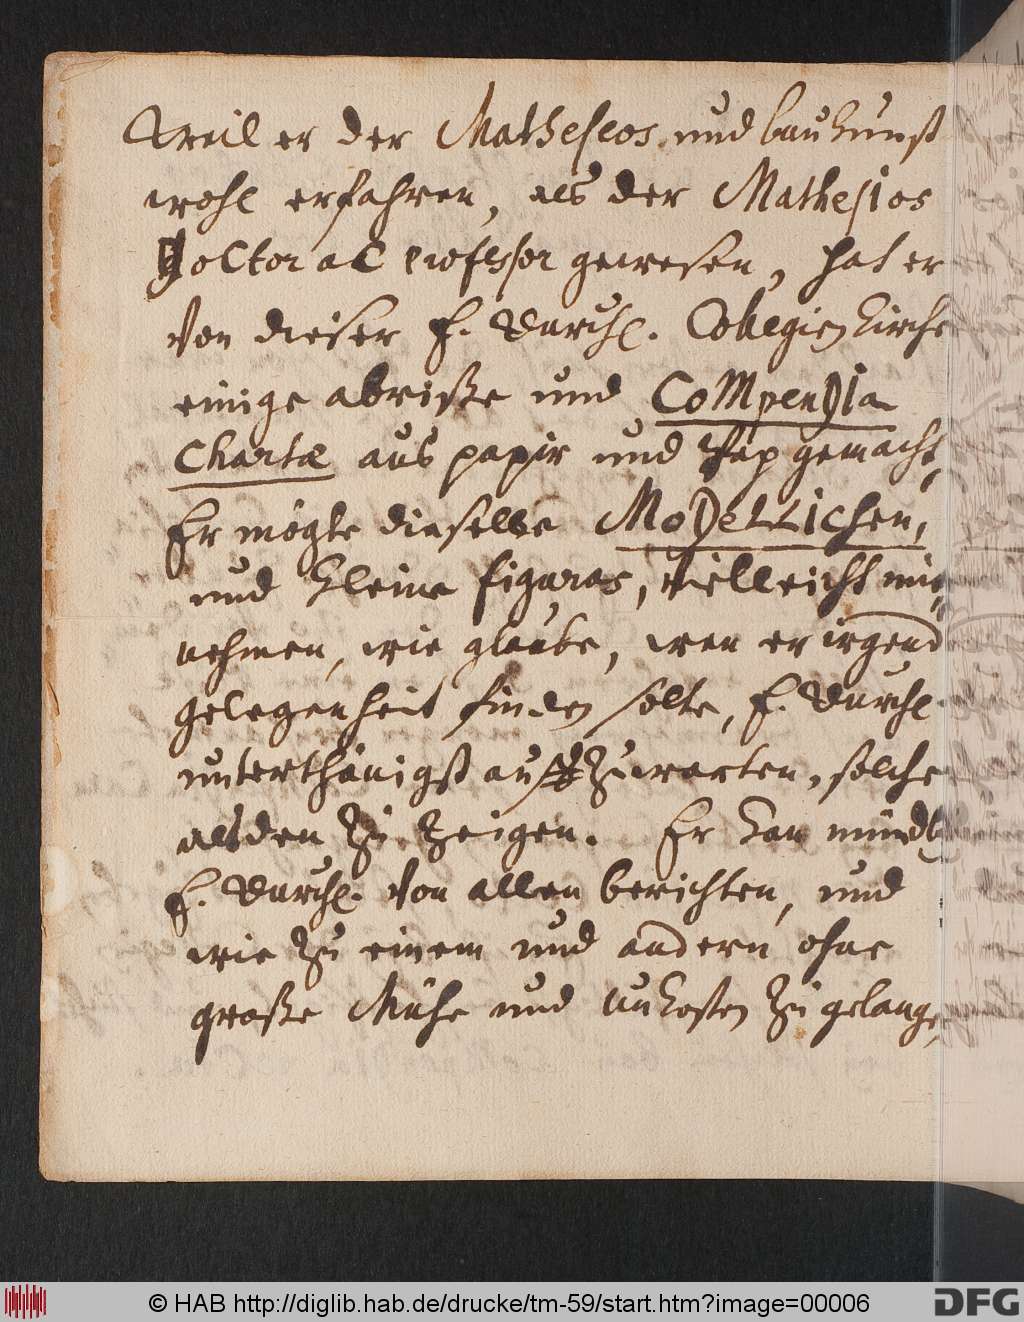 Weil er der Matheseos und baukunst
wohl erfahren, als der Mathesios
Doctor ac Professor gewesen, hat er
von dieser F. Durchl. Collegien Kirche
einige abriße und CoMpenDIa
Chartæ aus papir und Pap gemacht,
Er mögte dieselbe MoDeLLichen,
und kleine figuras, vielleicht mit
nehmen, wie glaube, wen er irgend
gelegenheit finden solte, F. Durchl.
unterthänigst auffzuwarten, solche
alsden zu zeigen. Er kan mündl.
F. Durchl. von allen berichten, und
wie zu einem und andern ohne
große Mühe und unkosten zu gelangen,
© HAB http://diglib.hab.de/drucke/tm-59/start.htm?image=00006
DFG